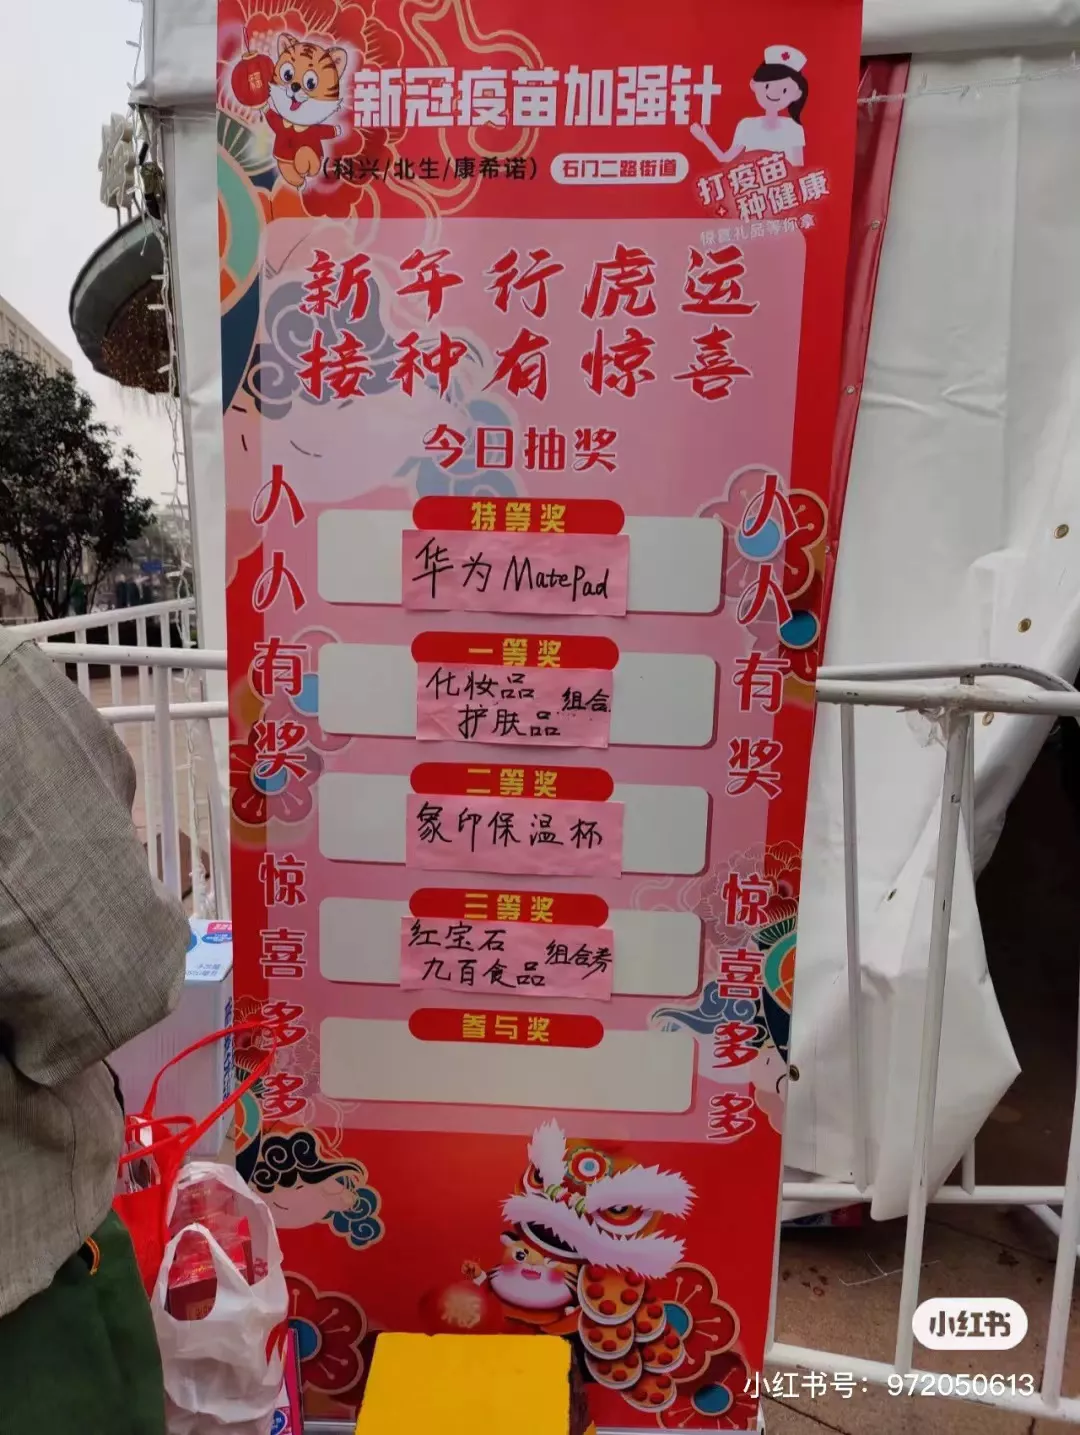 新冠疫苗加强针
(科兴/北生/康希诺)
石门二路街道
打疫苗
+种健康
惊喜礼品等你拿
新年行虎运
接种有惊喜
今日抽奖
人人有奖 惊喜多多
特等奖
华为MatePad
一等奖
化妆品
护肤品
组合
二等奖
象印保温杯
三等奖
红宝石
九百食品
组合券
参与奖
人人有奖 惊喜多多
福
小红书
小红书号：972050613